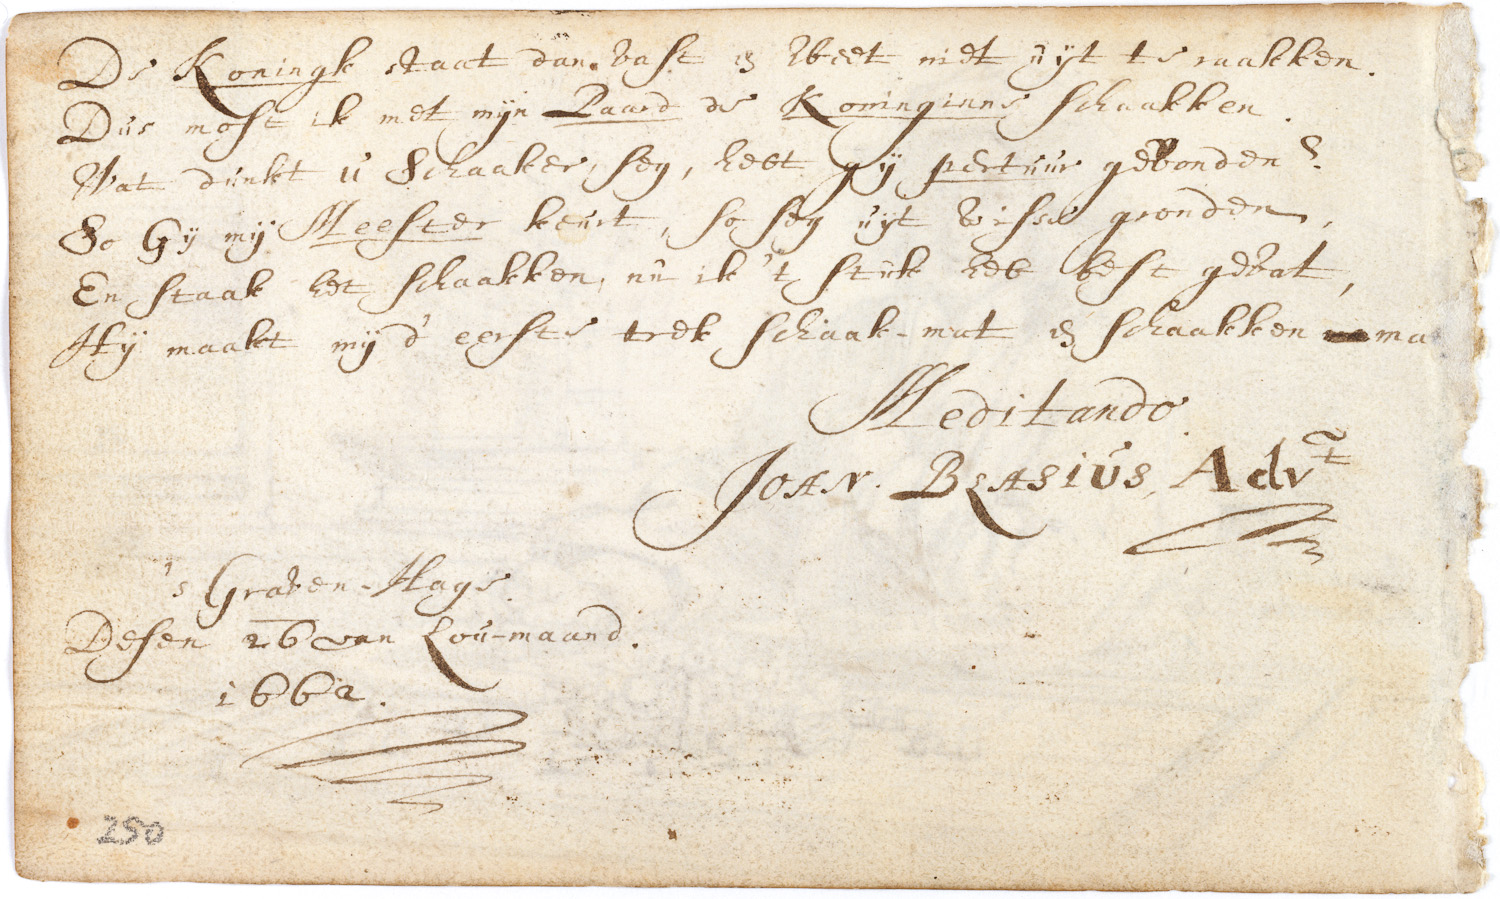 De Koningk staat dan vast en weet niet uyt te raakken.
Dus most ik met mijn Paard de Koninginne schaakken.
Wat dunkt U Schaaker, seg, hebt gij pertuur gevonden?
So Gy mij Meester keurt, so seg uyt wisse gronden,
En staak het schaakken, nu ik 't stuk heb best gevat,
Hij maakt mij d' eerste trek schaak-mat en schaakken ma
Meditando
Joan. Blasius, Advt
's Graven-Hage
Desen 26 van Lou-maand.
1662.
250